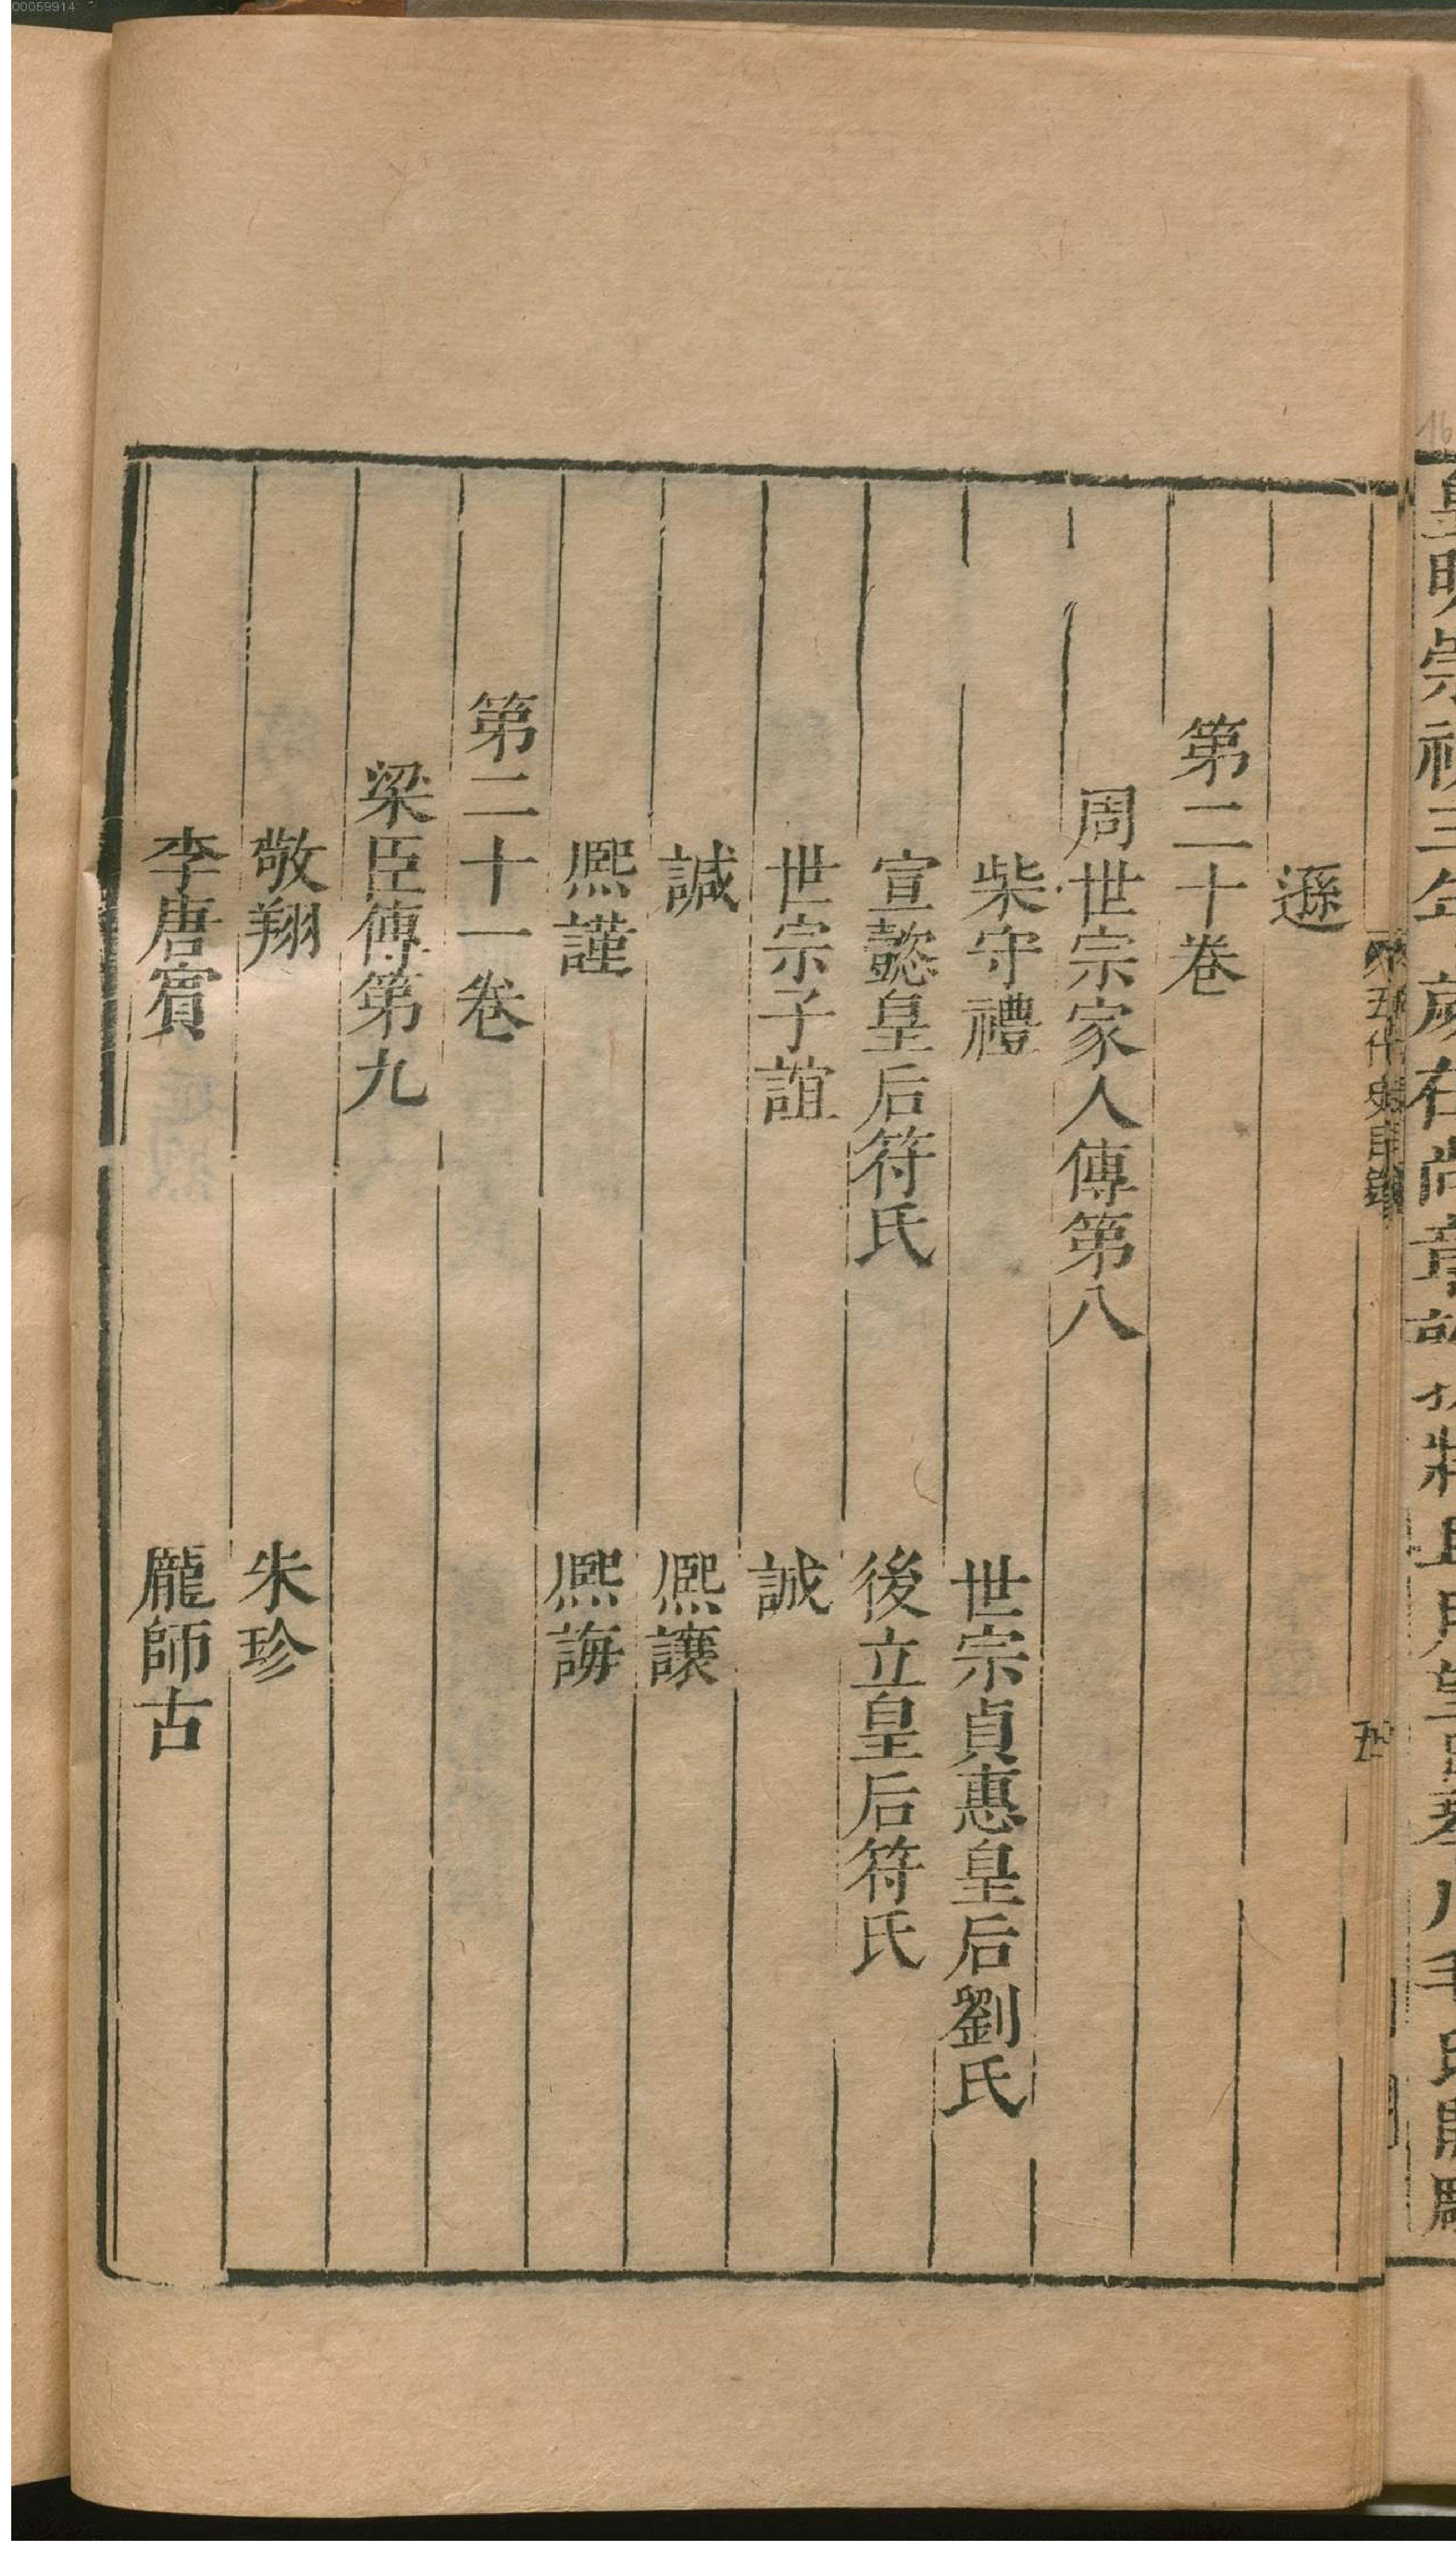 00059914
皇明崇禎三年歲在尚章
五代史目錄
五
遜
第二十卷
周世宗家人傳第八
柴守禮 世宗貞惠皇后劉氏
宣懿皇后符氏 後立皇后符氏
世宗子誼 誠
諴 熙讓
熙謹 熙誨
第二十一卷
梁臣傳第九
敬翔 朱珍
李唐賓 龐師古